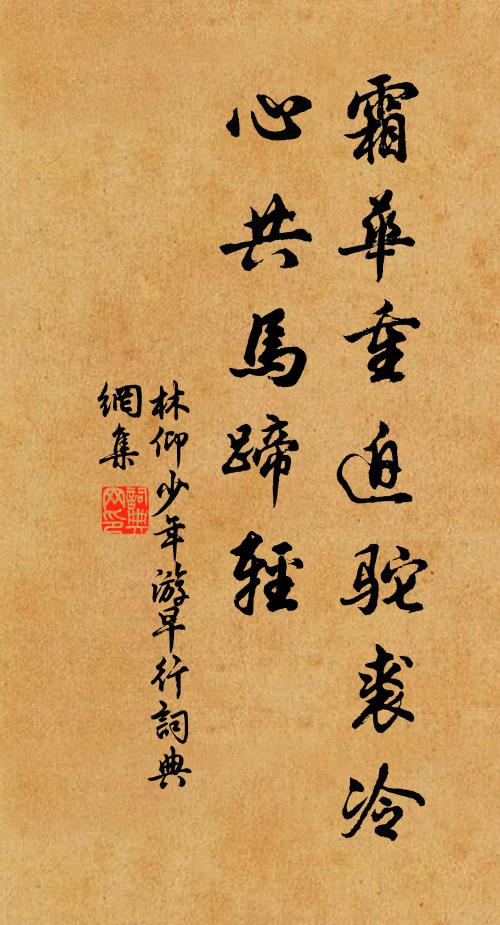 霜華重迫駝裘冷
心共馬蹄輕
林仰少年游早行詞典
網集
詞典網印